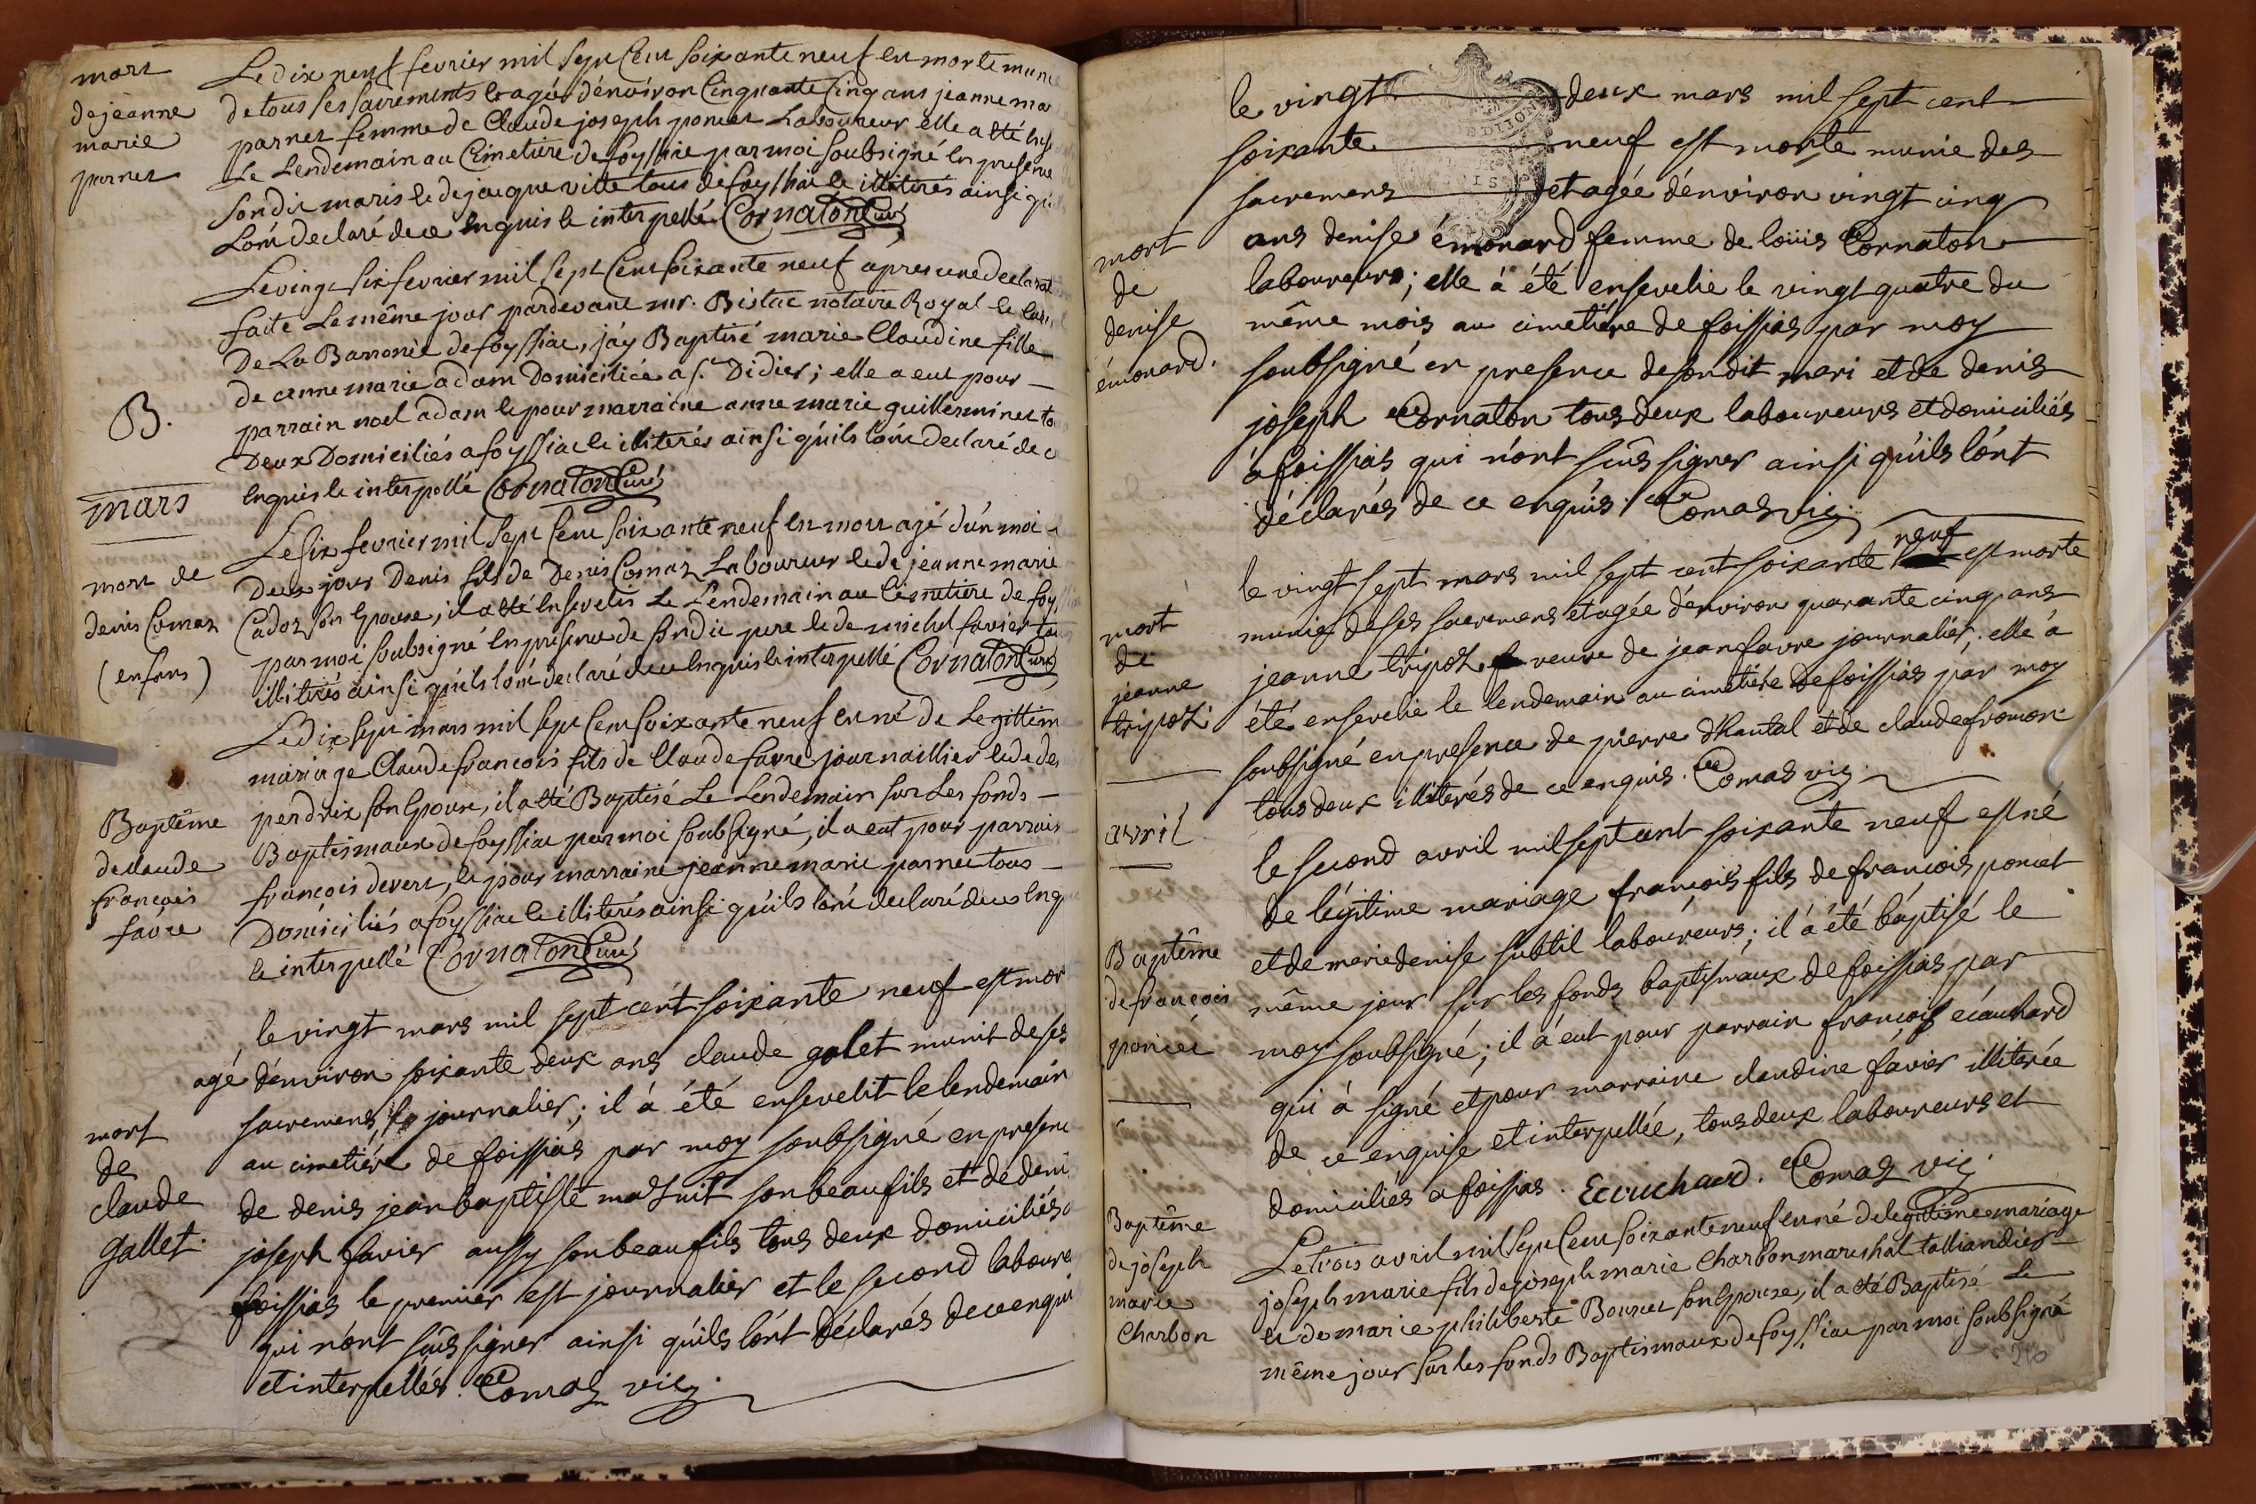 mort
de jeanne
marie
parnet
Le dix neuf fevrier mil sept Cent soixante neuf est morte munie
de tous ses sacrements et agée d'environ Cinquante Cinq ans jeanne mar
parnet femme de Claude joseph poncet Laboureur elle a été
Le Lendemain au Cimetiere de foyssiac par moi soubsigné En presence
son dit maris et de jacque vitte tous de foyssiac et illiterés ainsi qu
L'ont declaré de ce Enquis et interpellé Cornaton Curé
B.
Le vingt six fevrier mil sept Cent soixante neuf apres une declarat
faite Le même jour pardevant mr. Bistac notaire Royal et
De La Baronie de foyssiac, j'ay Baptisé marie Claudine fille
de anne marie adam Domiciliée a St. Didier; elle a eut pour
parrain noel adam et pour marraine anne marie guillerminet to
Deux Domiciliés a foyssiac et illiterés ainsi qu'ils l'ont declaré de c
Enquis et interpellé Cornaton Curé
mars
mort de
denis Comaz
(enfans)
Le six fevrier mil sept Cent soixante neuf est mort agé d'un moi
Deux jours Denis fils de Denis Comaz Laboureur et de jeanne marie
Cadoz son Epouse, il a été Ensevelis Le Lendemain au Cimetiere de foyssiac
par moi soubsigné En presence de son dit pere et de michel favier
illiterés ainsi qu'ils l'ont declaré de ce Enquis et interpellé Cornaton Curé
Baptême
de claude
françois
favre
Le dix sept mars mil sept Cent soixante neuf est né de Legittime
mariage Claude francois fils de Claude favre journaillier et de de
perdrix son Epouse, il a été Baptisé Le Lendemain sur Les fonds
Baptismaux de foyssiac par moi soubsigné, il a eut pour parrain
francois devert, et pour marraine jeanne marie parnet tous
Domiciliés a foyssiac et illiterés ainsi qu'ils l'ont declaré de ce Enq
et interpellé Cornaton Curé
mort
de
claude
gallet.
le vingt mars mil sept cent soixante neuf est mor
agé d'environ soixante deux ans claude galet munit de ses
sacremens, journalier; il à été ensevelit le lendemain
au cimetiére de foissias par moy soubsigné en presenc
de denis jean baptiste masuit son beau fils et de deni
joseph favier aussy son beau fils tous deux domiciliés a
foissias le premier est journalier et le second laboure
qui n'ont sûs signer ainsi qu'ils l'ont déclarés de ce enqui
et interpellés. Comaz vic.
mort
de
denise
émonard.
le vingt deux mars mil sept cent
soixante neuf est morte munie des
sacremens et agée d'environ vingt cinq
ans denise émonard femme de loüis Cornaton
laboureurs; elle à été ensevelie le vingt quatre du
même mois au cimetiére de foissias par moy
soubsigné en presence de son dit mari et de denis
joseph Cornaton tous deux laboureurs et domiciliés
à foissias qui n'ont sûs signer ainsi qu'ils l'ont
déclarés de ce enquis. Comaz vic.
mort
de
jeanne
tripoz
le vingt sept mars mil sept cent soixante neuf est morte
munie de ses sacremens et agée d'environ quarante cinq ans
jeanne tripoz veuve de jean favre journalier. elle à
été ensevelie le lendemain au cimetiére de foissias par moy
soubsigné en presence de pierre d'hantal et de claude fromon
tous deux illiterés de ce enquis. Comas vic.
avril
Baptême
de françois
poncet
le second avril mil sept cent soixante neuf est né
de légitime mariage françois fils de françois poncet
et de marie denise subtil laboureurs; il à été bâptisé le
même jour sur les fonds baptismaux de foissias par
moy soubsigné; il à eut pour parrain françois écauchard
qui à signé et pour marraine claudine favier illiterée
de ce enquise et interpellée, tous deux laboureurs et
domiciliés a foissias. Ecouchard. Comaz vic.
Baptême
de joseph
marie
Charbon
Le trois avril mil sept Cent soixante neuf est né de legitime mariage
joseph marie fils de joseph marie Charbon mareshal talliandier
et de marie philiberte Bourcet son Epouse, il a été Baptisé Le
même jour sur les fonds Baptismaux de foyssiac par moi soubsigné